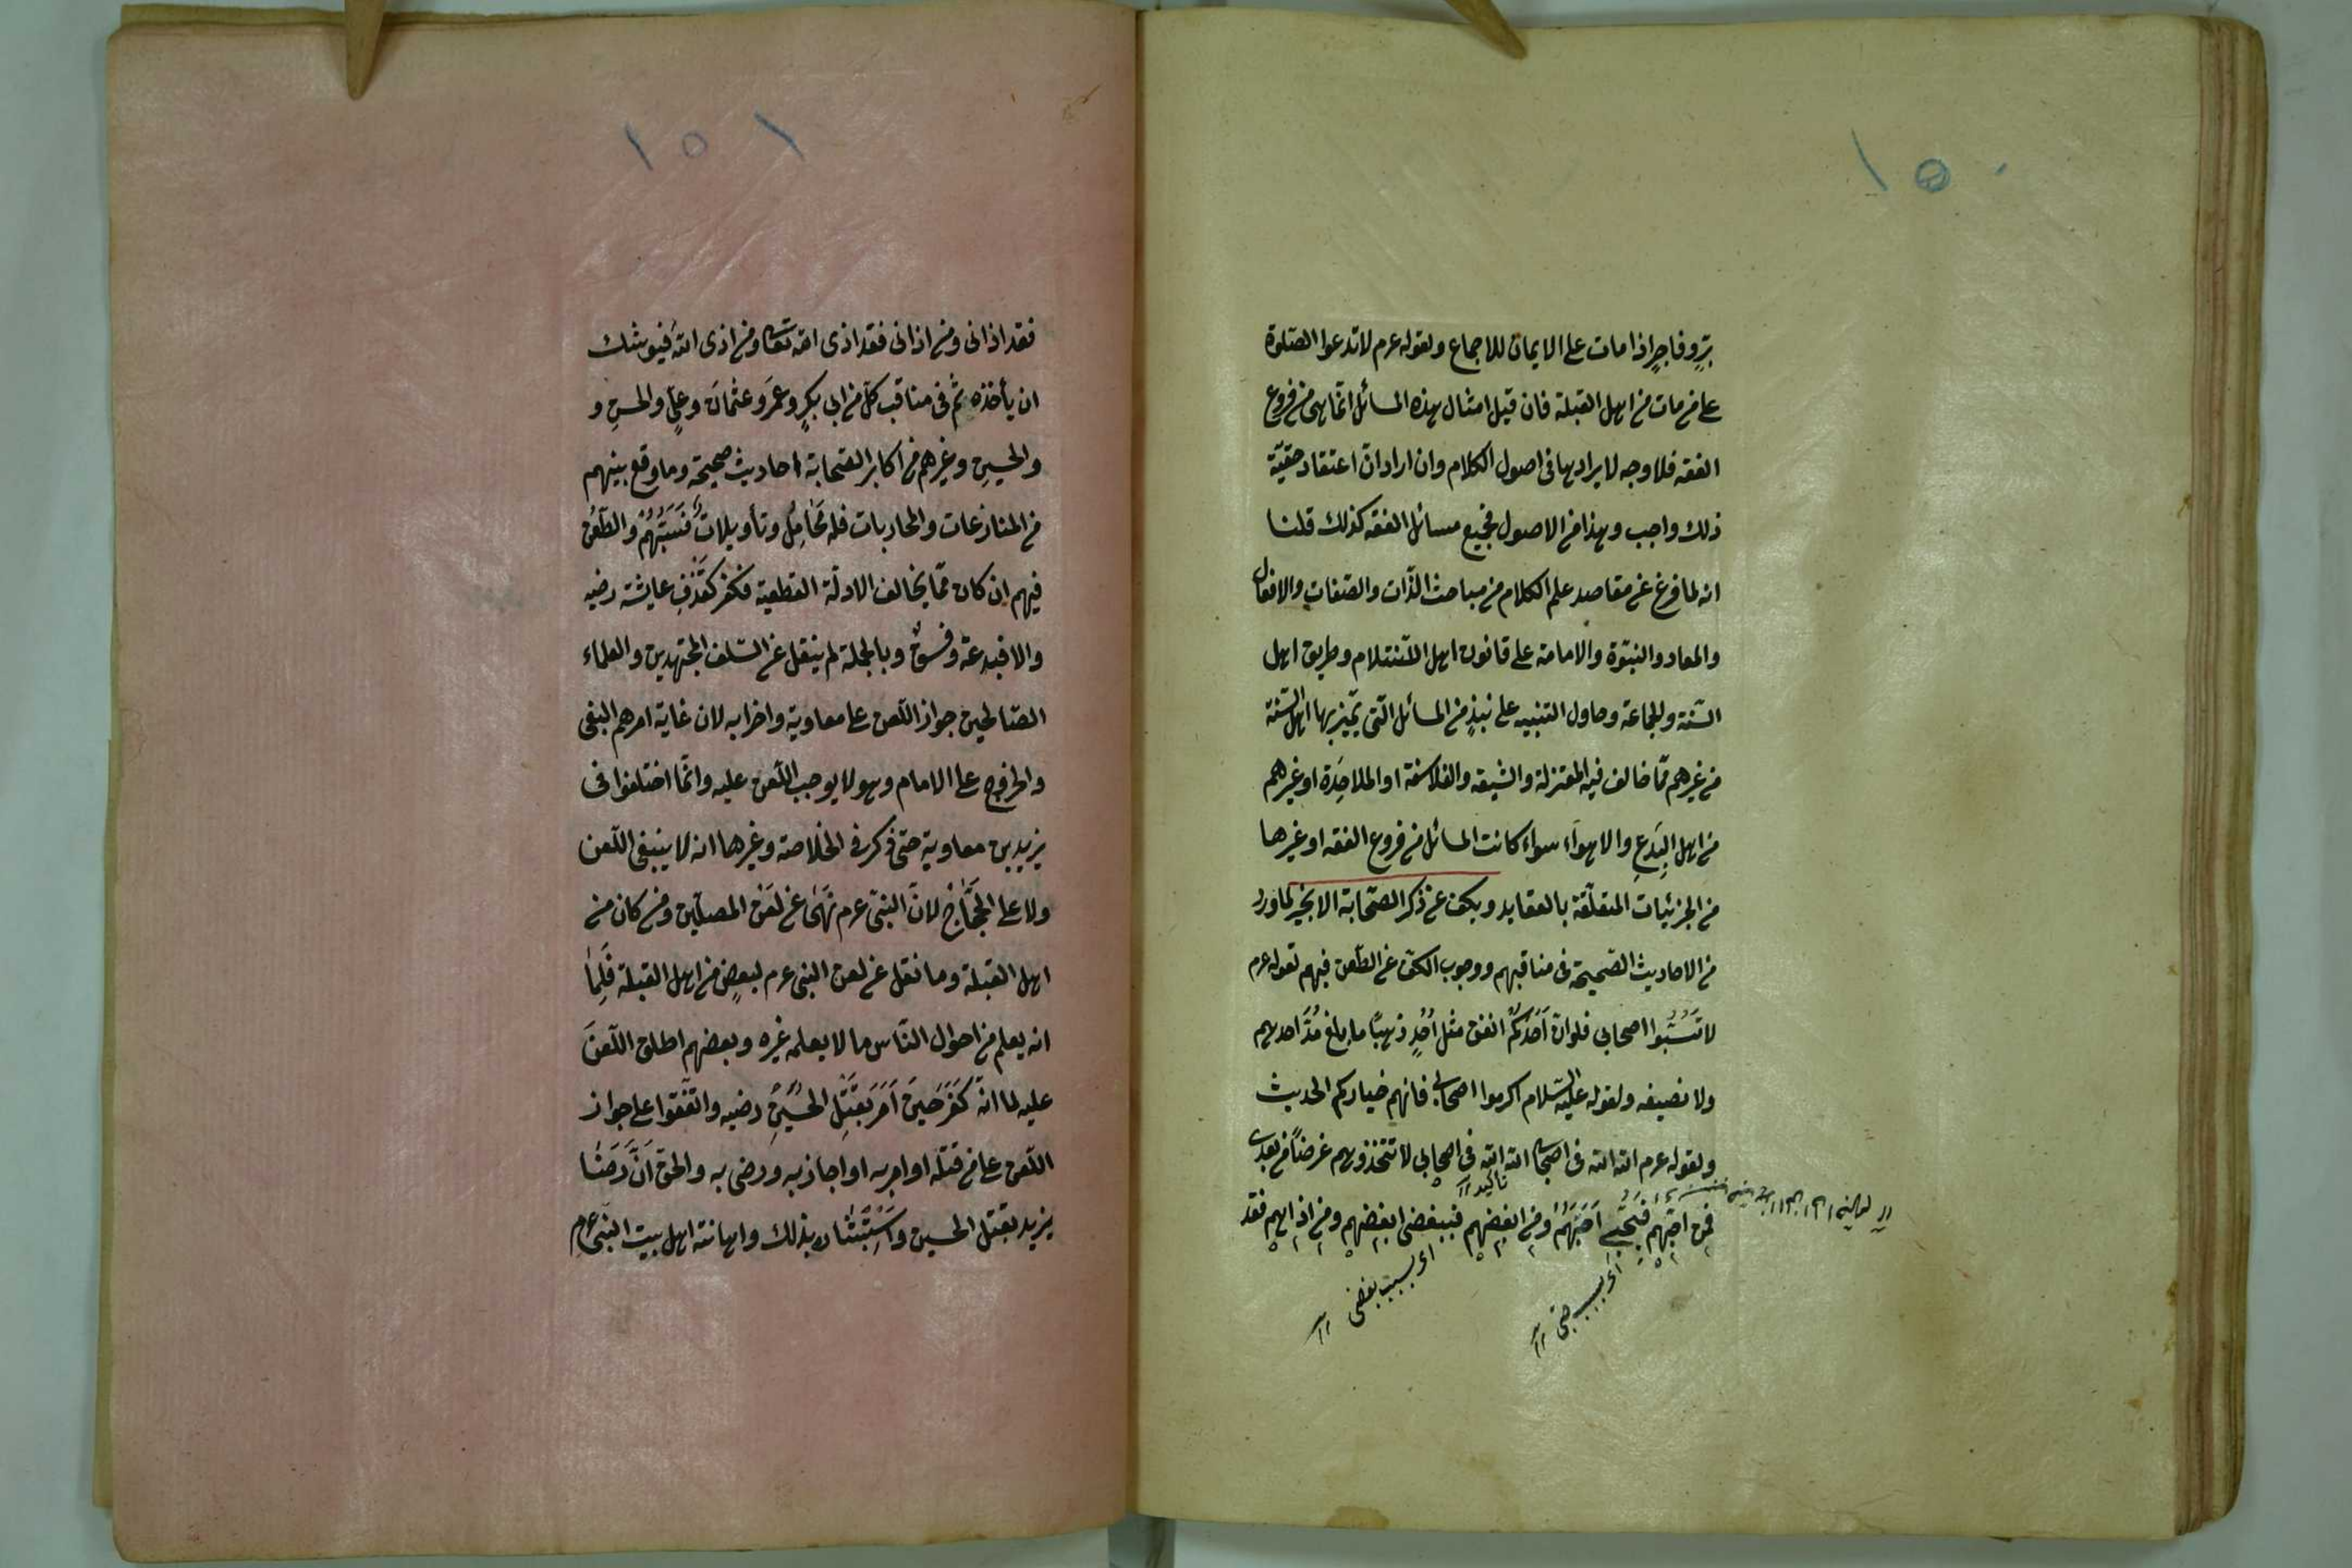 ١٥٠
برٍّ وفاجرٍ اذا مات على الايمان للاجماع ولقوله عرم لا تدعوا الصلوة
على من مات من اهل القبلة فان قيل امثال هذه المسائل انّما هى من فروع
الفقه فلا وجه لايرادها فى اصول الكلام وان اراد انّ اعتقاد حقيّة
ذلك واجب وهذا من الاصول فجميع مسائل الفقه كذلك قلنا
انه لما فرغ عن مقاصد علم الكلام من مباحث الذّات والصّفات والافعال
والمعاد والنبوّة والامامة على قانون اهل الاسلام وطريق اهل
السّنة والجماعة وحاول التنبيه على نبذٍ من المسائل الّتى تميّز بها اهل السّنة
من غيرهم ممّا خالف فيه المعتزلة والشيعه والفلاسفة او الملاحِدَة او غيرهم
من اهل البِدَعِ والاهوآء سواء كانت المسائل من فروع الفقه او غيرها
من الجزئيات المتعلّقة بالعقايد ويكف عن ذكر الصّحابة الا بخير لما ورد
من الاحاديث الصّحيحة فى مناقبهم ووجوب الكفّ عن الطّعن فيهم لقوله عرم
لا تَسُبّوا اصحابى فلو انّ اَحَدَكُمْ انفق مثل اُحُدٍ ذهبًا ما بلغ مُدَّ احدهم
ولا نصيفه ولقوله عليه السّلام اكرموا اصحابى فانهم خياركم الحديث
ولقوله عرم الله الله فى اصحابى الله الله فى اصحابى لا تتخذوهم غرضًا من بعدى
تأكيد
فمن احبّهم فبحُبّى اَحَبَّهُمْ ومن ابغضهم فببغضى ابغضهم ومن اذاهم فقد
اى بسبب حبّى
اى بسبب بغضى
١٥١
فقد اذانى ومن اذانى فقد اذى الله تعالى ومن اذى الله فيوشك
ان يأخذه ثم فى مناقب كلّ من ابى بكرٍ وعمَرَ وعثمانَ وعلىٍّ والحسنِ و
والحسينِ وغيرهم من اكابر الصّحابة احاديث صحيحة وما وقع بينهم
من المنازعات والمحاربات فله مَحَامِلُ وتأويلاتٌ فَسَبُّهُمْ والطّعن
فيهم ان كان ممّا يخالف الادلّة القطعية فكفر كقَذْفِ عايشة رضيه
والا فبدعة وفسقٌ وبالجملة لم ينقل عن السّلف المجتهدين والعلماء
الصّالحين جواز اللّعن على معاوية واحزابه لان غاية امرهم البغى
والخروج على الامام وهو لا يوجب اللّعن عليه وانّما اختلفوا فى
يزيد بن معاوية حتى ذكر فى الخلاصة وغيرها انه لا ينبغى اللّعن
ولا على الحَجَّاجِ لانّ النبىّ عرم نَهَى عن لَعْنِ المصلّين ومن كان من
اهل القبلة وما نقل عن لعن النبى عرم لبعضٍ من اهل القبلة فَلِمَا
انه يعلم من احوال النّاس ما لا يعلمه غيره وبعضهم اطلق اللّعنَ
عليه لما انّه كَفَرَ حين اَمَرَ بقَتْلِ الحُسَيْنِ رضيه واتّفقوا على جواز
اللّعن على من قتله او امر به او اجاز به ورضى به والحق اَنَّ رَضَا
يزيد بقتل الحسين واسْتِبْشَاره بذلك واهانته اهل بيت النّبى عرم